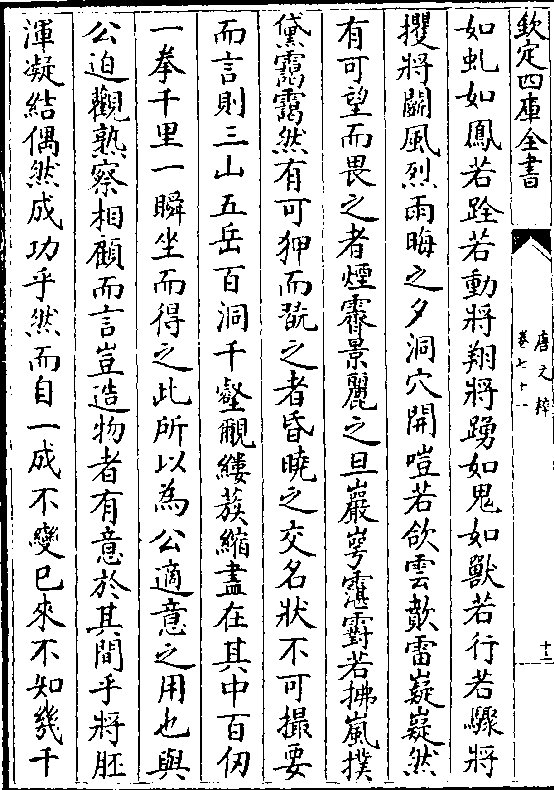 欽定四庫全書
唐文粹
卷七十一
十三
如虬如鳳若跧若動將翔將踴如鬼如獸若行若驟將
攫將鬬風烈雨晦之夕洞穴開喧若欱雲歕雷嶷嶷然
有可望而畏之者煙霽景麗之旦巖崿霮䨴若拂嵐撲
黛靄靄然有可狎而翫之者昏曉之交名狀不可撮要
而言則三山五岳百洞千壑覼縷蔟縮盡在其中百仞
一拳千里一瞬坐而得之此所以為公適意之用也與
公迫觀熟察相顧而言豈造物者有意於其間乎將胚
渾凝結偶然成功乎然而自一成不變已來不知幾千